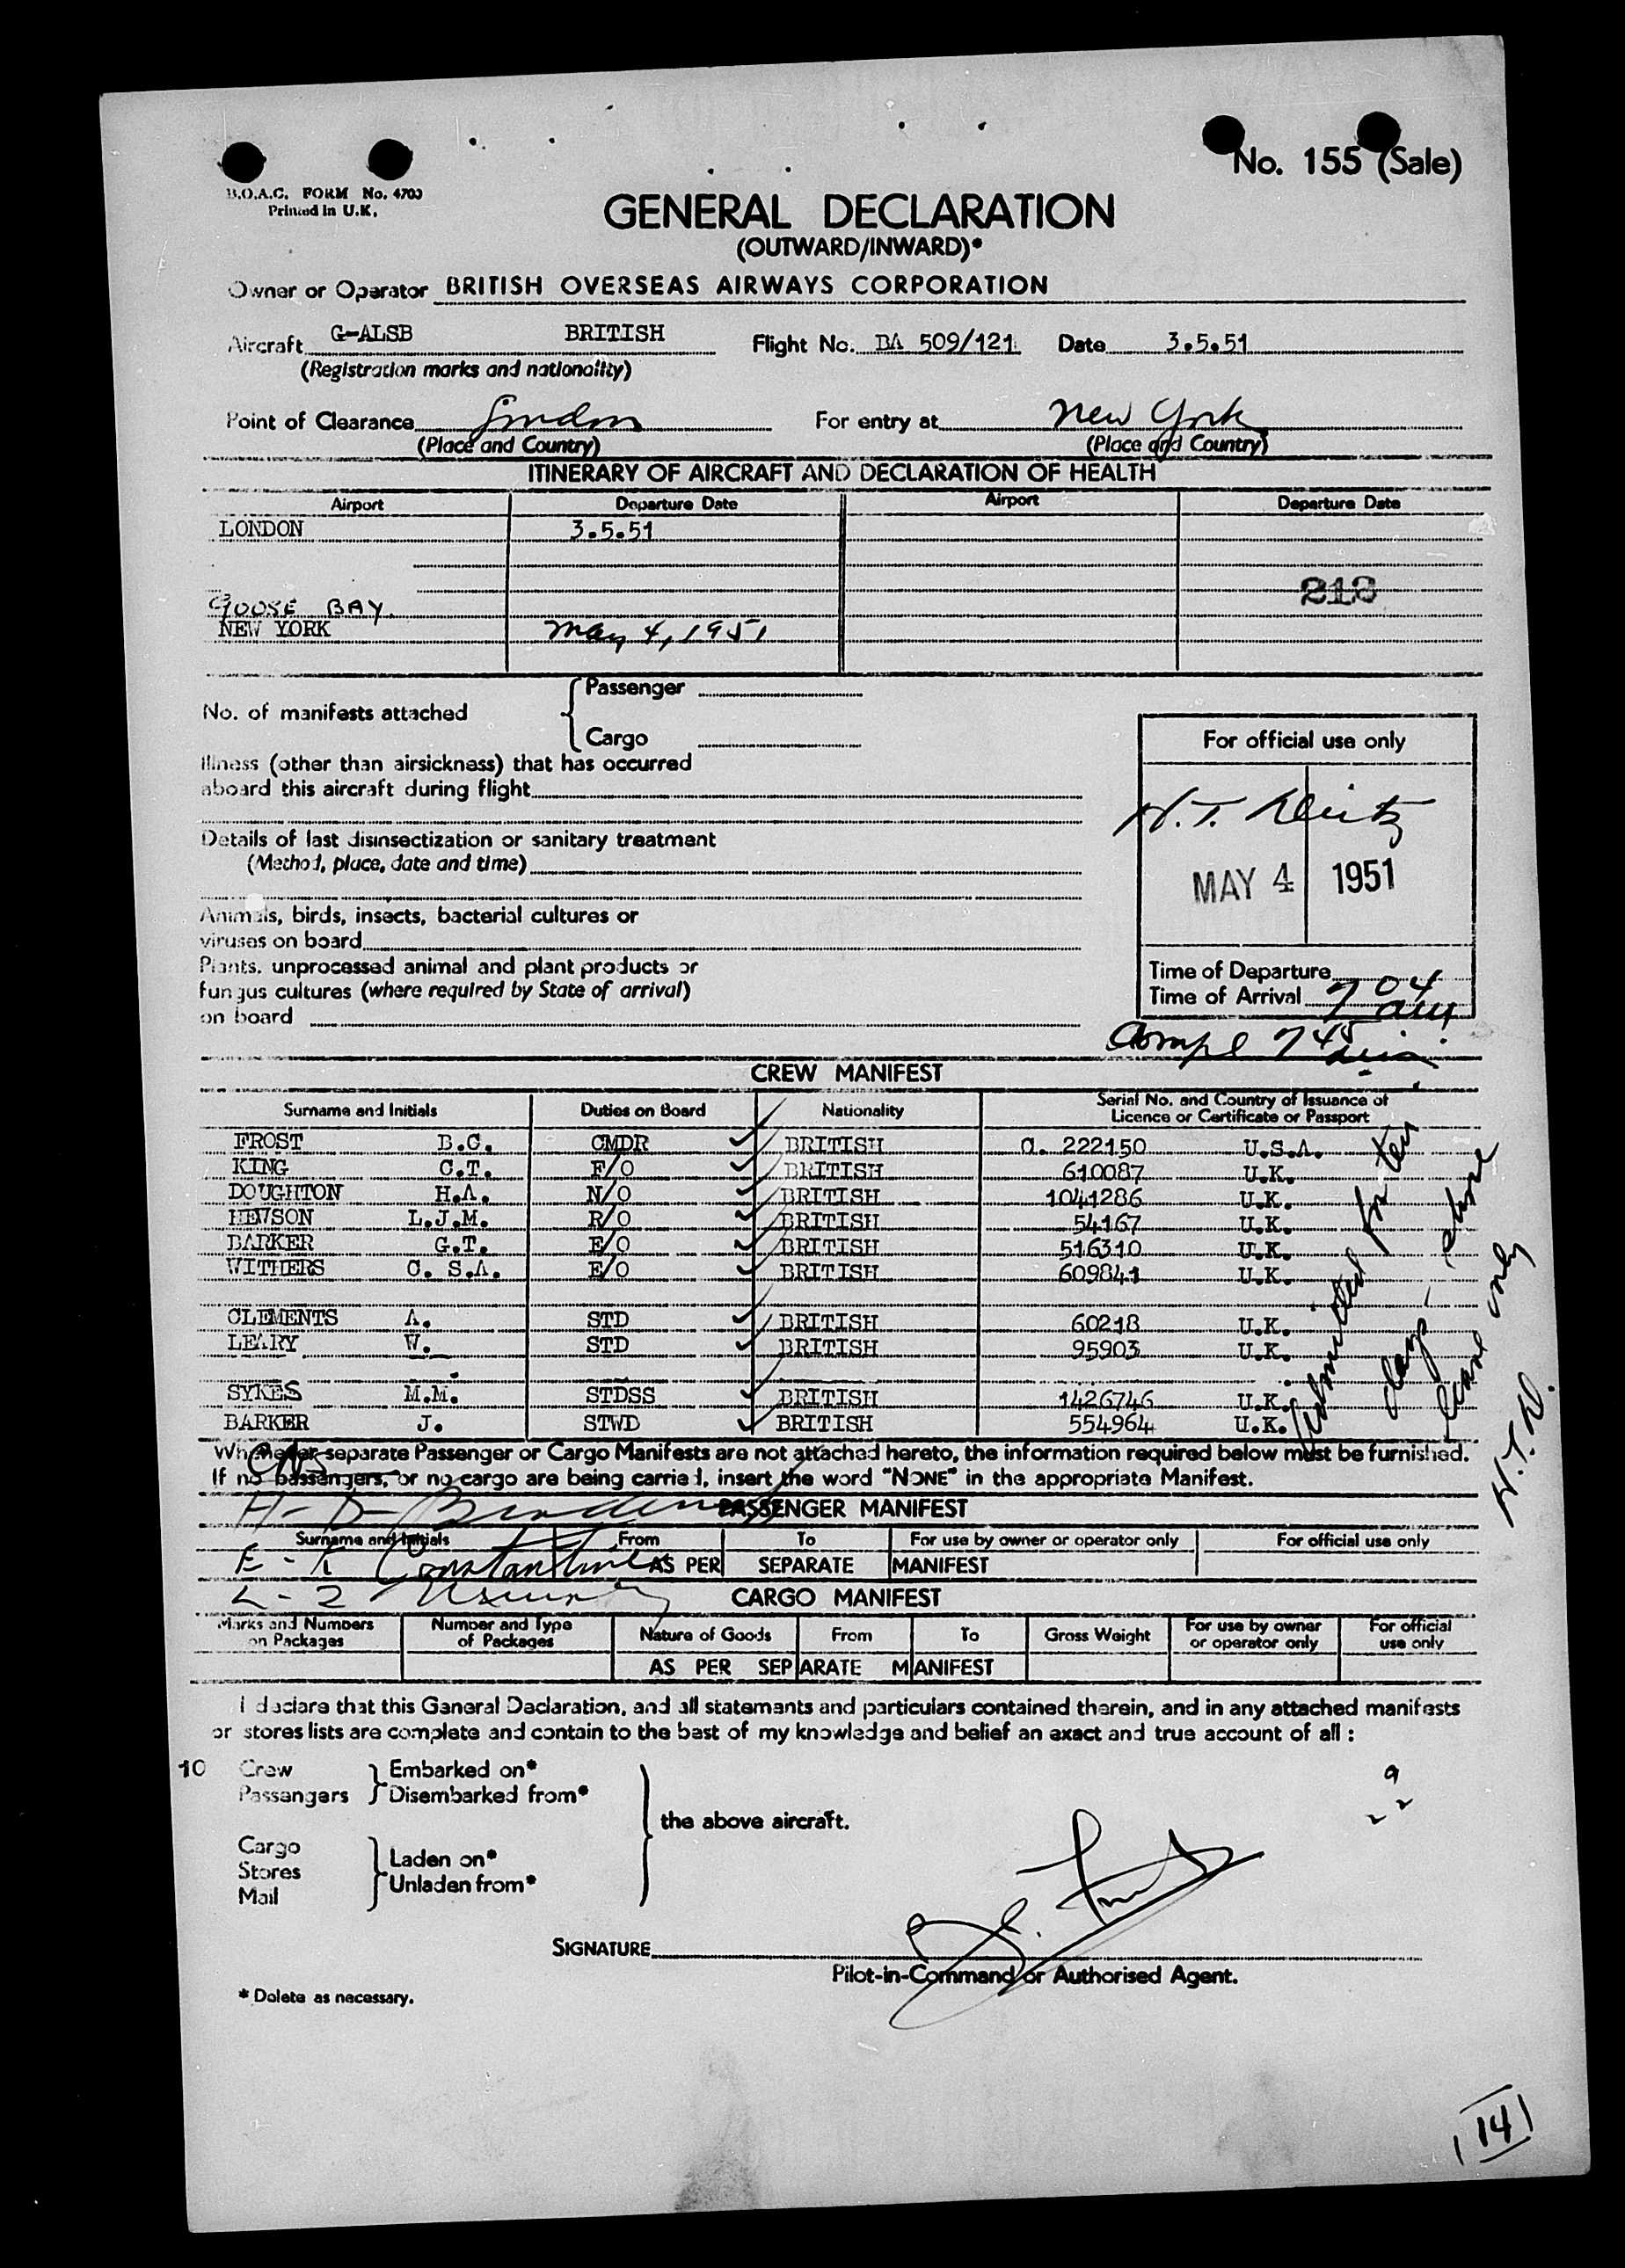 No. 155 (Sale)
B.O.A.C. FORM No. 4700
Printed in U.K.
GENERAL DECLARATION
(OUTWARD/INWARD)*
Owner or Operator BRITISH OVERSEAS AIRWAYS CORPORATION
Aircraft G-ALSB BRITISH Flight No. BA 509/121 Date 3.5.51
(Registration marks and nationality)
Point of Clearance London For entry at New York
(Place and Country) (Place and Country)
ITINERARY OF AIRCRAFT AND DECLARATION OF HEALTH
Airport Departure Date Airport Departure Date
LONDON 3.5.51
218
GOOSE BAY.
NEW YORK May 4, 1951
No. of manifests attached { Passenger
Cargo
Illness (other than airsickness) that has occurred
aboard this aircraft during flight
Details of last disinsectization or sanitary treatment
(Method, place, date and time)
Animals, birds, insects, bacterial cultures or
viruses on board
Plants, unprocessed animal and plant products or
fungus cultures (where required by State of arrival)
on board
For official use only
MAY 4 1951
Time of Departure
Time of Arrival 7 04 am
Compl 7 45
CREW MANIFEST
Surname and Initials Duties on Board Nationality Serial No. and Country of Issuance of Licence or Certificate or Passport
FROST B.C. CMDR BRITISH C. 222150 U.S.A.
KING C.T. F/O BRITISH 610087 U.K.
DOUGHTON H.A. N/O BRITISH 1041286 U.K.
HEWSON L.J.M. R/O BRITISH 54167 U.K.
BARKER G.T. E/O BRITISH 516310 U.K.
WITHERS C. S.A. E/O BRITISH 609841 U.K.
CLEMENTS A. STD BRITISH 60218 U.K.
LEARY W. STD BRITISH 95903 U.K.
SYKES M.M. STDSS BRITISH 1426746 U.K.
BARKER J. STWD BRITISH 554964 U.K.
Admitted for ten
days - shore
leave only
Whenever separate Passenger or Cargo Manifests are not attached hereto, the information required below must be furnished.
If no passengers, or no cargo are being carried, insert the word "NONE" in the appropriate Manifest.
H - D -
PASSENGER MANIFEST
Surname and Initials From To For use by owner or operator only For official use only
E - K Constantine
AS PER SEPARATE MANIFEST
L - 2
CARGO MANIFEST
Marks and Numbers on Packages Number and Type of Packages Nature of Goods From To Gross Weight For use by owner or operator only For official use only
AS PER SEPARATE MANIFEST
I declare that this General Declaration, and all statements and particulars contained therein, and in any attached manifests
or stores lists are complete and contain to the best of my knowledge and belief an exact and true account of all :
10 Crew } Embarked on*
Passengers } Disembarked from*
the above aircraft.
9
22
Cargo
Stores } Laden on*
Mail } Unladen from*
SIGNATURE
Pilot-in-Command or Authorised Agent.
* Delete as necessary.
14